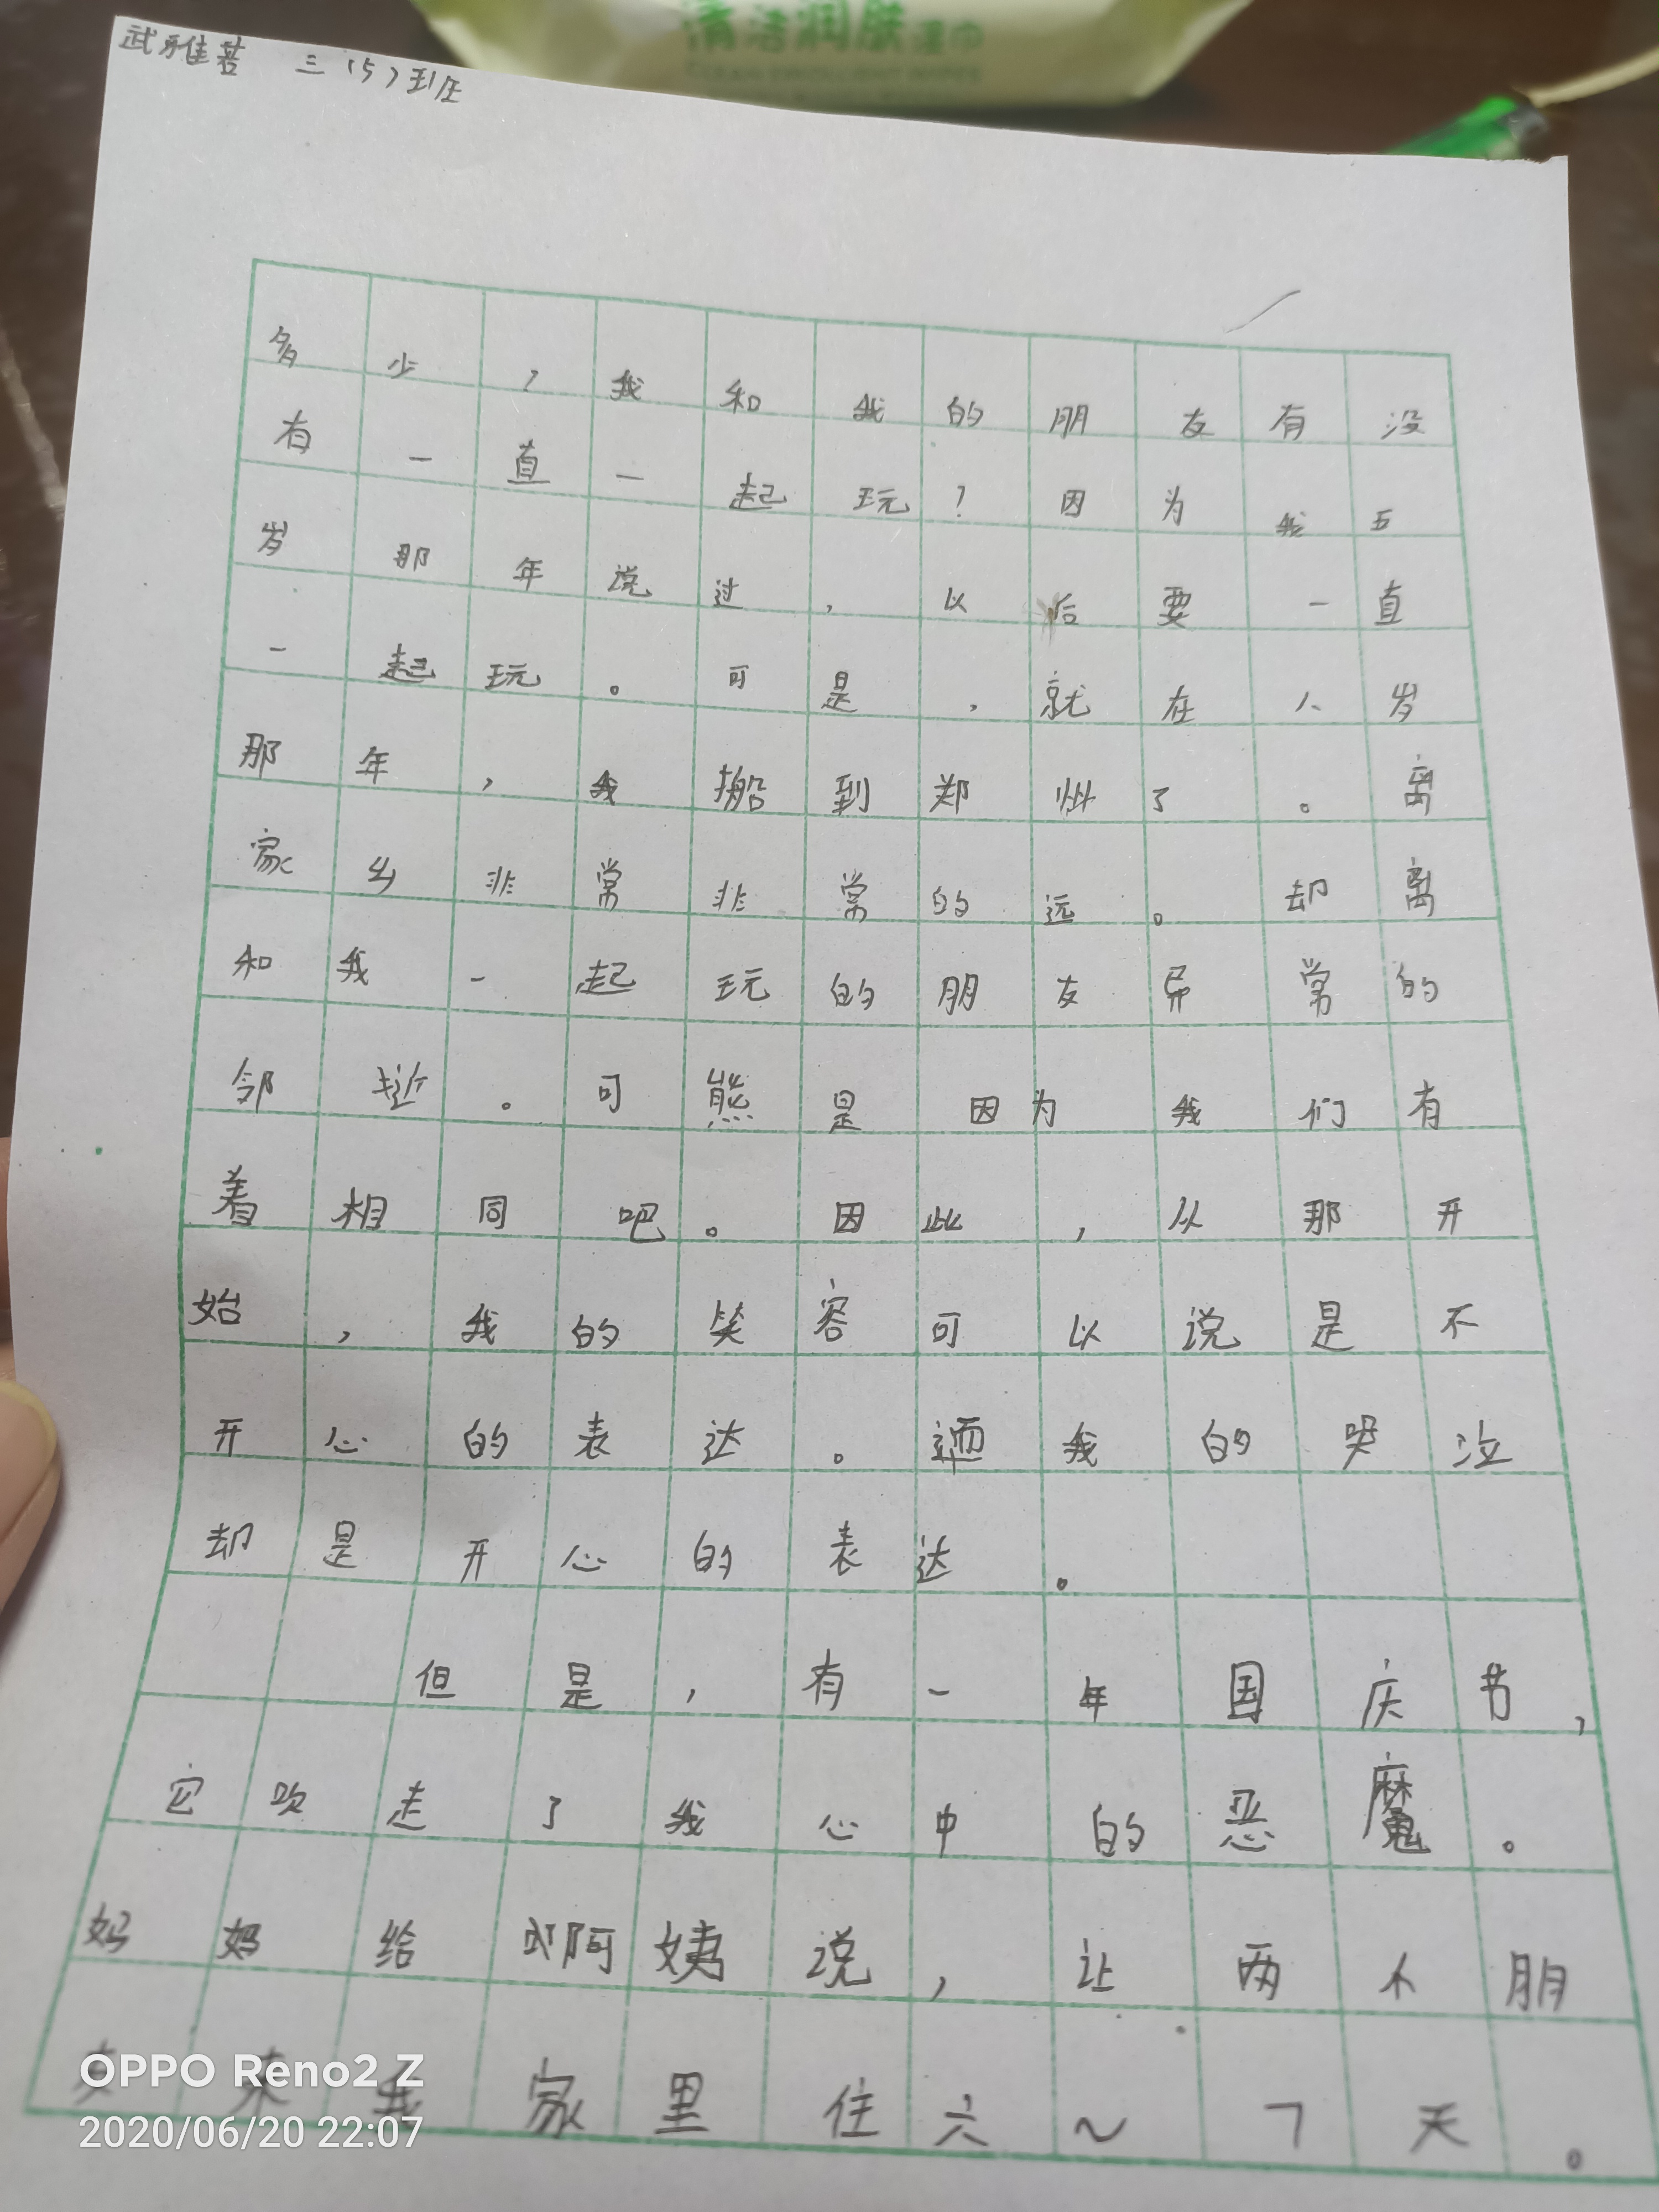 清洁润肤湿巾
武雅茗 三（5）班
多少？我和我的朋友有没
有一直一起玩？因为我五
岁那年说过，以后要一直
一起玩。可是，就在八岁
那年，我搬到郑州了。离
家乡非常非常的远。却离
和我一起玩的朋友异常的
邻近。可熊是因为我们有
着相同吧。因此，从那开
始，我的笑容可以说是不
开心的表达。而我的哭泣
却是开心的表达。
但是，有一年国庆节，
它吹走了我心中的恶魔。
妈妈给武阿姨说，让两个朋
友来我家里住六～7天。
OPPO Reno2 Z
2020/06/20 22:07